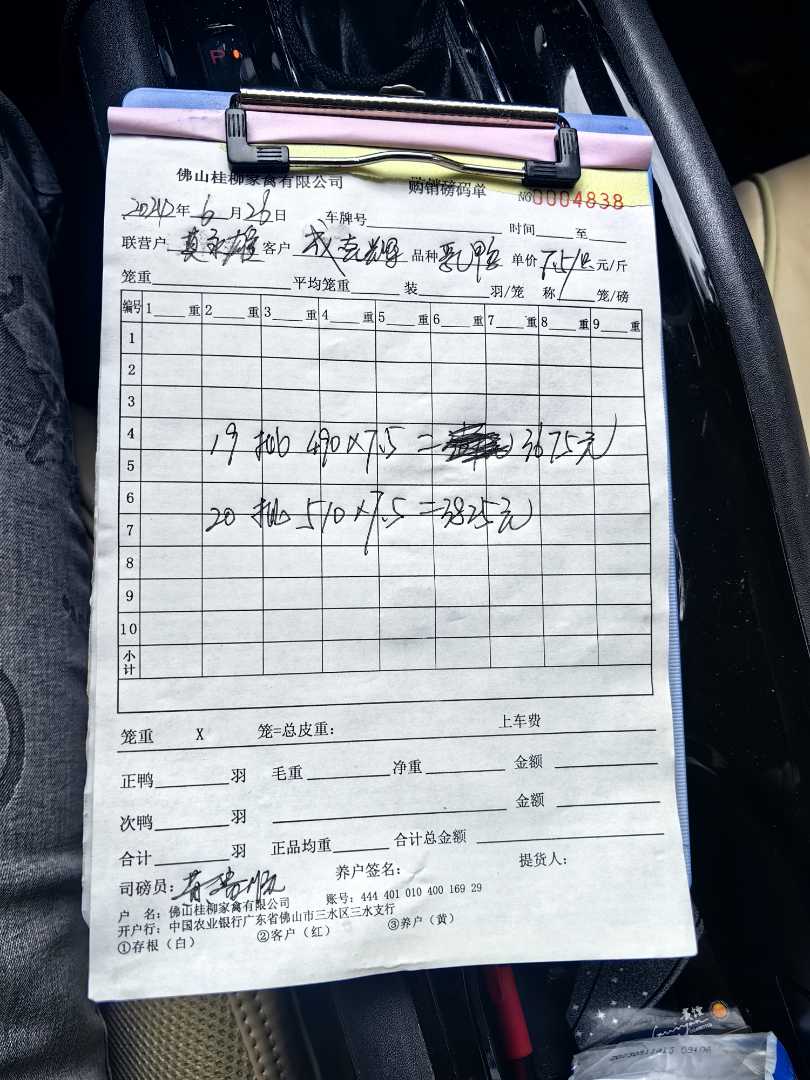 P
佛山桂柳家禽有限公司 购销磅码单 NO 0004838
年 6 月 26 日 车牌号 时间 至
联营户 客户 品种 乳鸭 单价 7.5/只 元/斤
笼重 平均笼重 装 羽/笼 称 笼/磅
编号 1 重 2 重 3 重 4 重 5 重 6 重 7 重 8 重 9 重
1
2
3
4
19 抽 490×7.5= 3675元
5
6
20 抽 510×7.5=3825元
7
8
9
10
小计
笼重 X 笼=总皮重: 上车费
正鸭 羽 毛重 净重 金额
次鸭 羽 金额
合计 羽 正品均重 合计总金额
司磅员: 养户签名: 提货人:
户 名: 佛山桂柳家禽有限公司 账号: 444 401 010 400 169 29
开户行: 中国农业银行广东省佛山市三水区三水支行
①存根(白) ②客户(红) ③养户(黄)